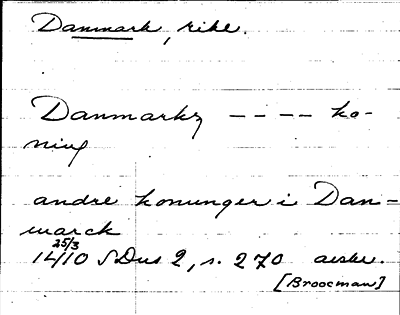 Danmark, rike.
Danmarks ---- ko-
nung
andre konunger i Dan-
marck
25/3
1410 SDns 2, s. 270 avskr.
[Broocman]